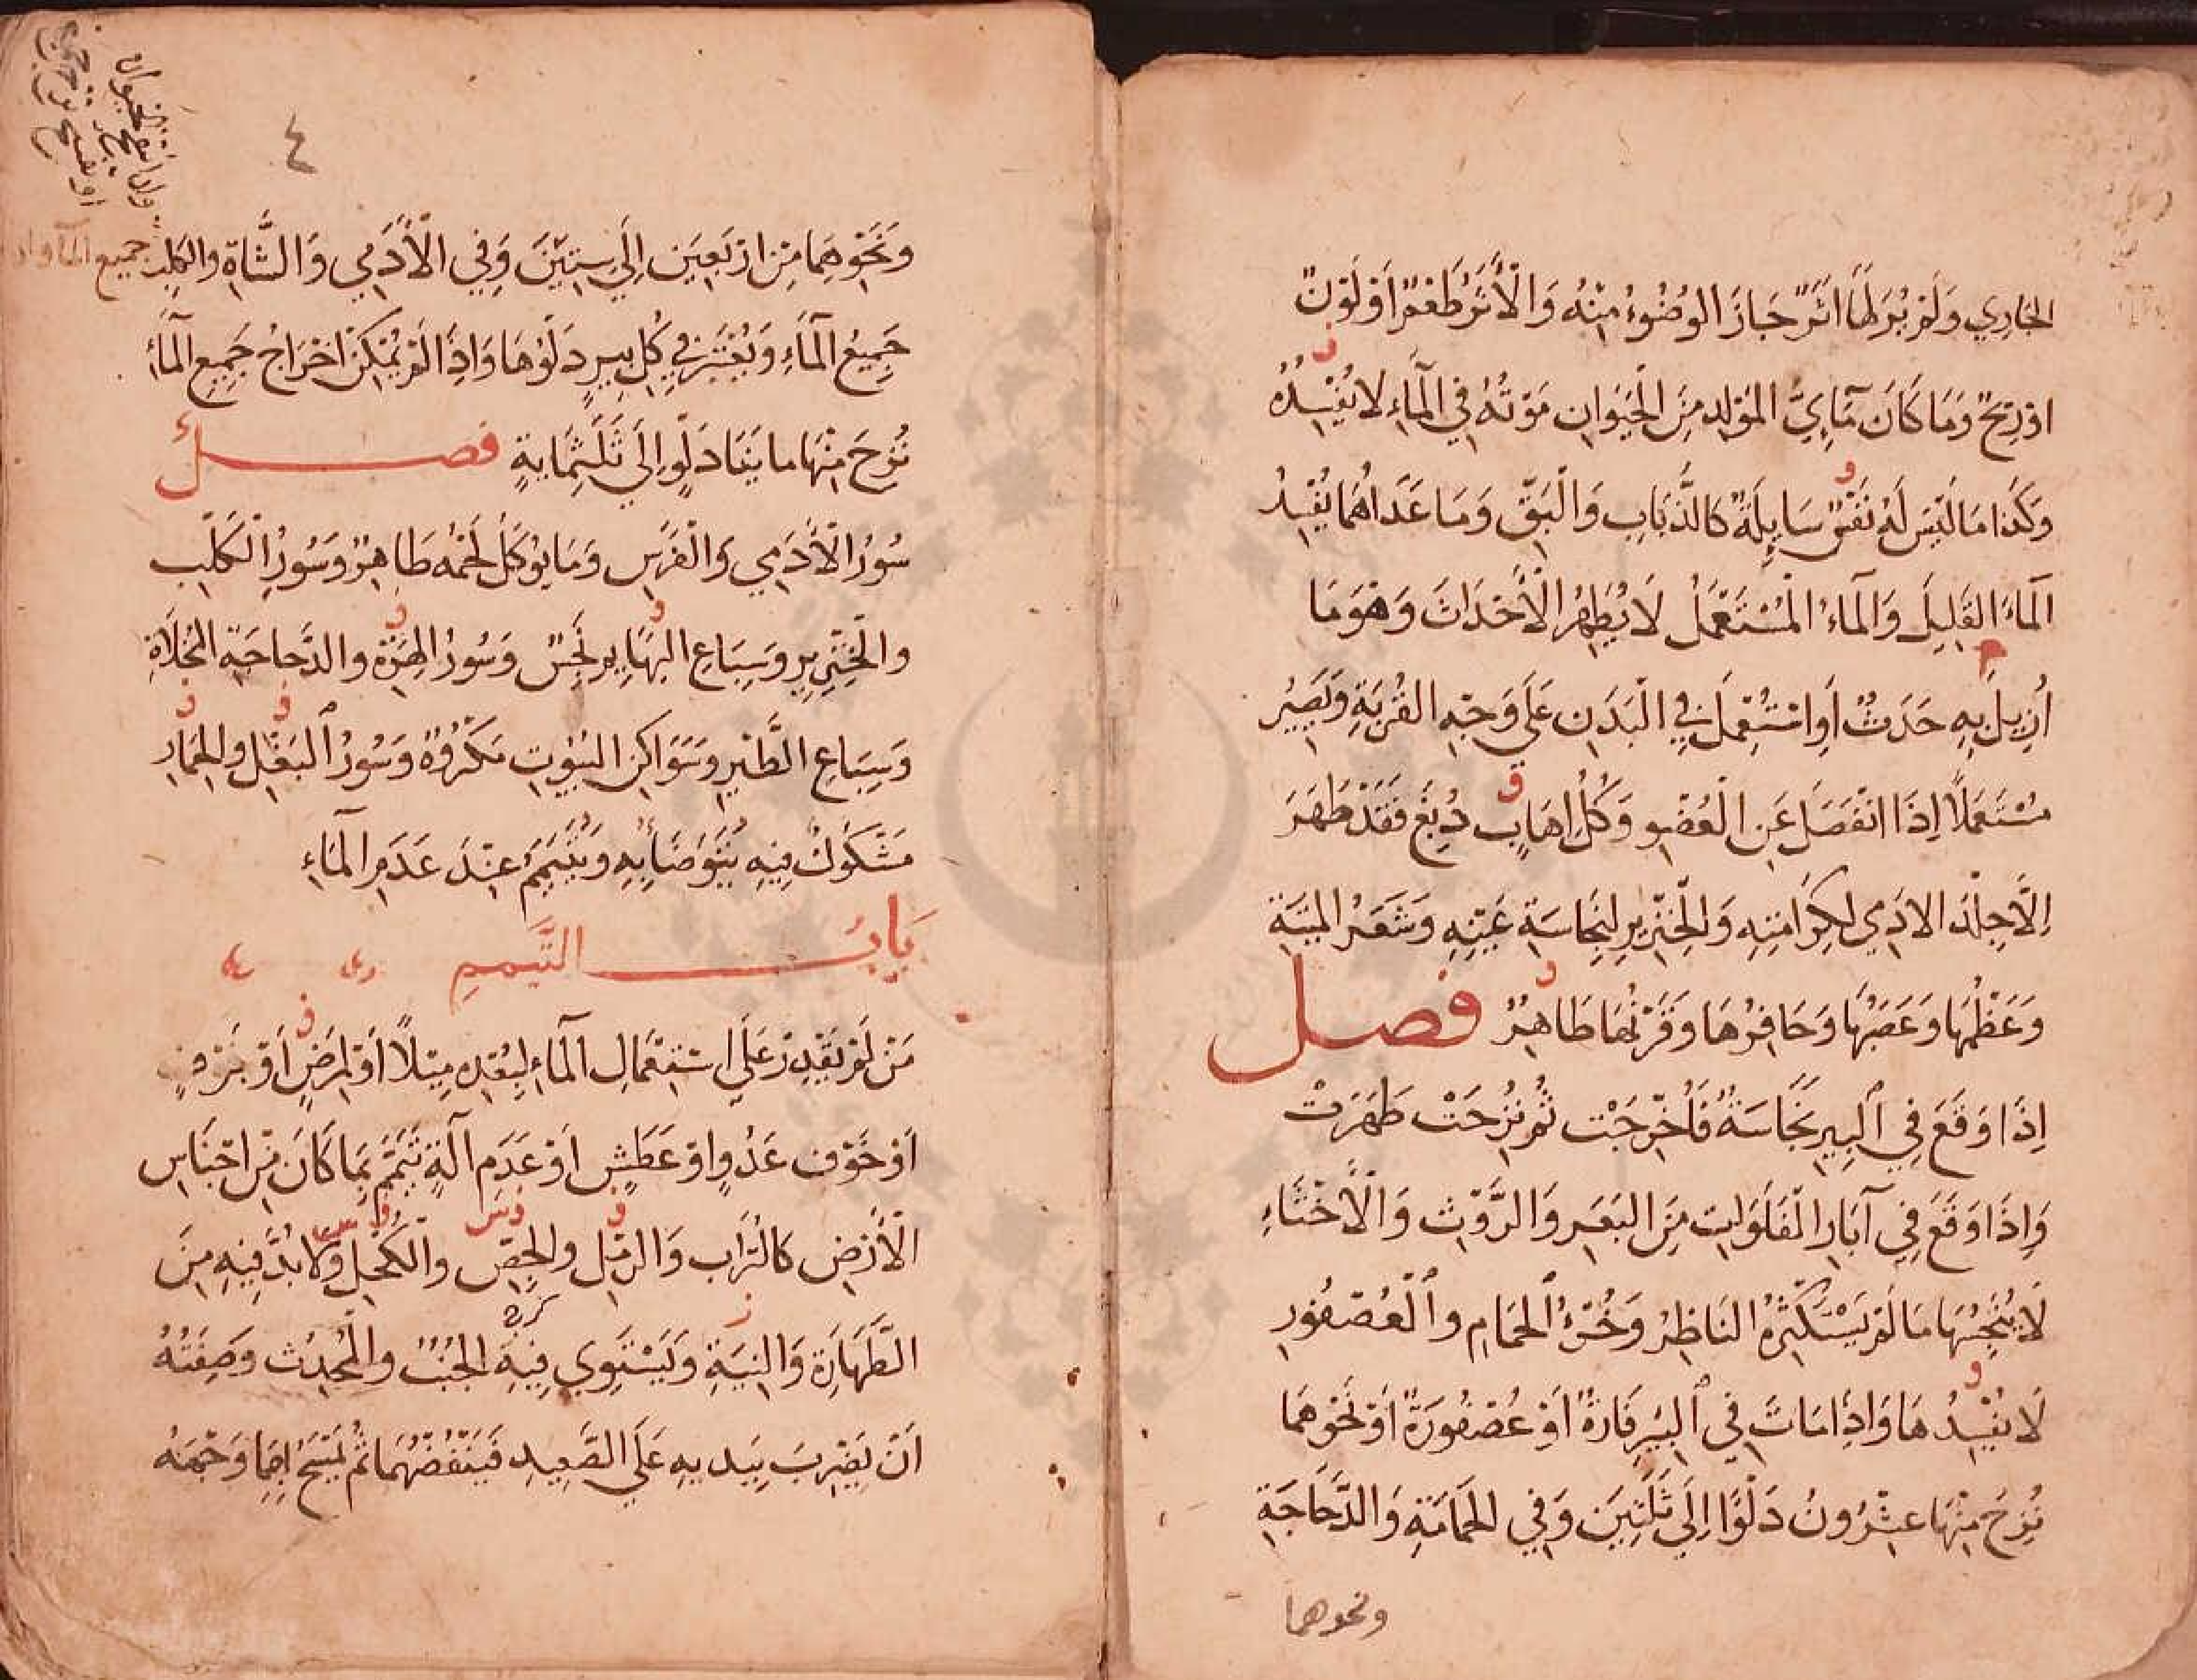 الجاري ولم ير لها أثر جاز الوضوء منه والأثر طعم أو لون
أو ريح وما كان مايي المولد من الحيوان موته في الماء لا يفسده
وكذا ما ليس له نفس سايلة كالذباب والبق وما عداهما يفسد
الماء القليل والماء المستعمل لا يطهر الأحداث وهو ما
أزيل به حدث أو استعمل في البدن على وجه القربة ويصير
مستعملا إذا انفصل عن العضو وكل إهاب دبغ فقد طهر
إلا جلد الادمي لكرامته والخنزير لنجاسة عينه وشعر الميتة
وعظمها وعصبها وحافرها وقرنها طاهر فصل
إذا وقع في البير نجاسة فأخرجت ثم نزحت طهرت
وإذا وقع في آبار الفلوات من البعر والروث والأخثاء
لا ينجسها ما لم يستكثره الناظر وخرء الحمام والعصفور
لا يفسدها وإذا مات في البير فارة أو عصفورة أو نحوهما
نزح منها عشرون دلوا إلى ثلثين وفي الحمامة والدجاجة
ونحوهما
٤
وان انتفخ الحيوان
او تفسخ نزح
ونحوهما من اربعين إلى ستين وفي الأدمي والشاة والكلب جميع الماء وان
جميع الماء ويعتبر في كل بير دلوها وإذا لم يمكن اخراج جميع الماء
نزح منها مايتا دلو إلى ثلثماية فصل
سور الأدمي والفرس وما يوكل لحمه طاهر وسور الكلب
والخنزير وسباع البهايم نجس وسور الهرة والدجاجة المخلاة
وسباع الطير وسواكن البيوت مكروه وسور البغل والحمار
مشكوك فيه يتوضأ به ويتيمم عند عدم الماء
باب التيمم
من لم يقدر على استعمال الماء لبعده ميلا أو لمرض أو برد
أو خوف عدو او عطش او عدم آلة تيمم بما كان من اجناس
الأرض كالتراب والرمل والجص والكحل ولا بد فيه من
الطهارة والنية ويستوي فيه الجنب والمحدث وصفته
أن يضرب بيديه على الصعيد فينفضهما ثم يمسح بهما وجهه